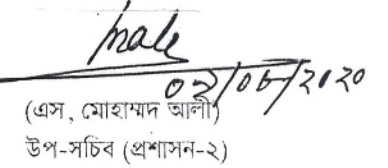 ০২/০৮/২০২০
(এস, মোহাম্মদ আলী)
উপ-সচিব (প্রশাসন-২)